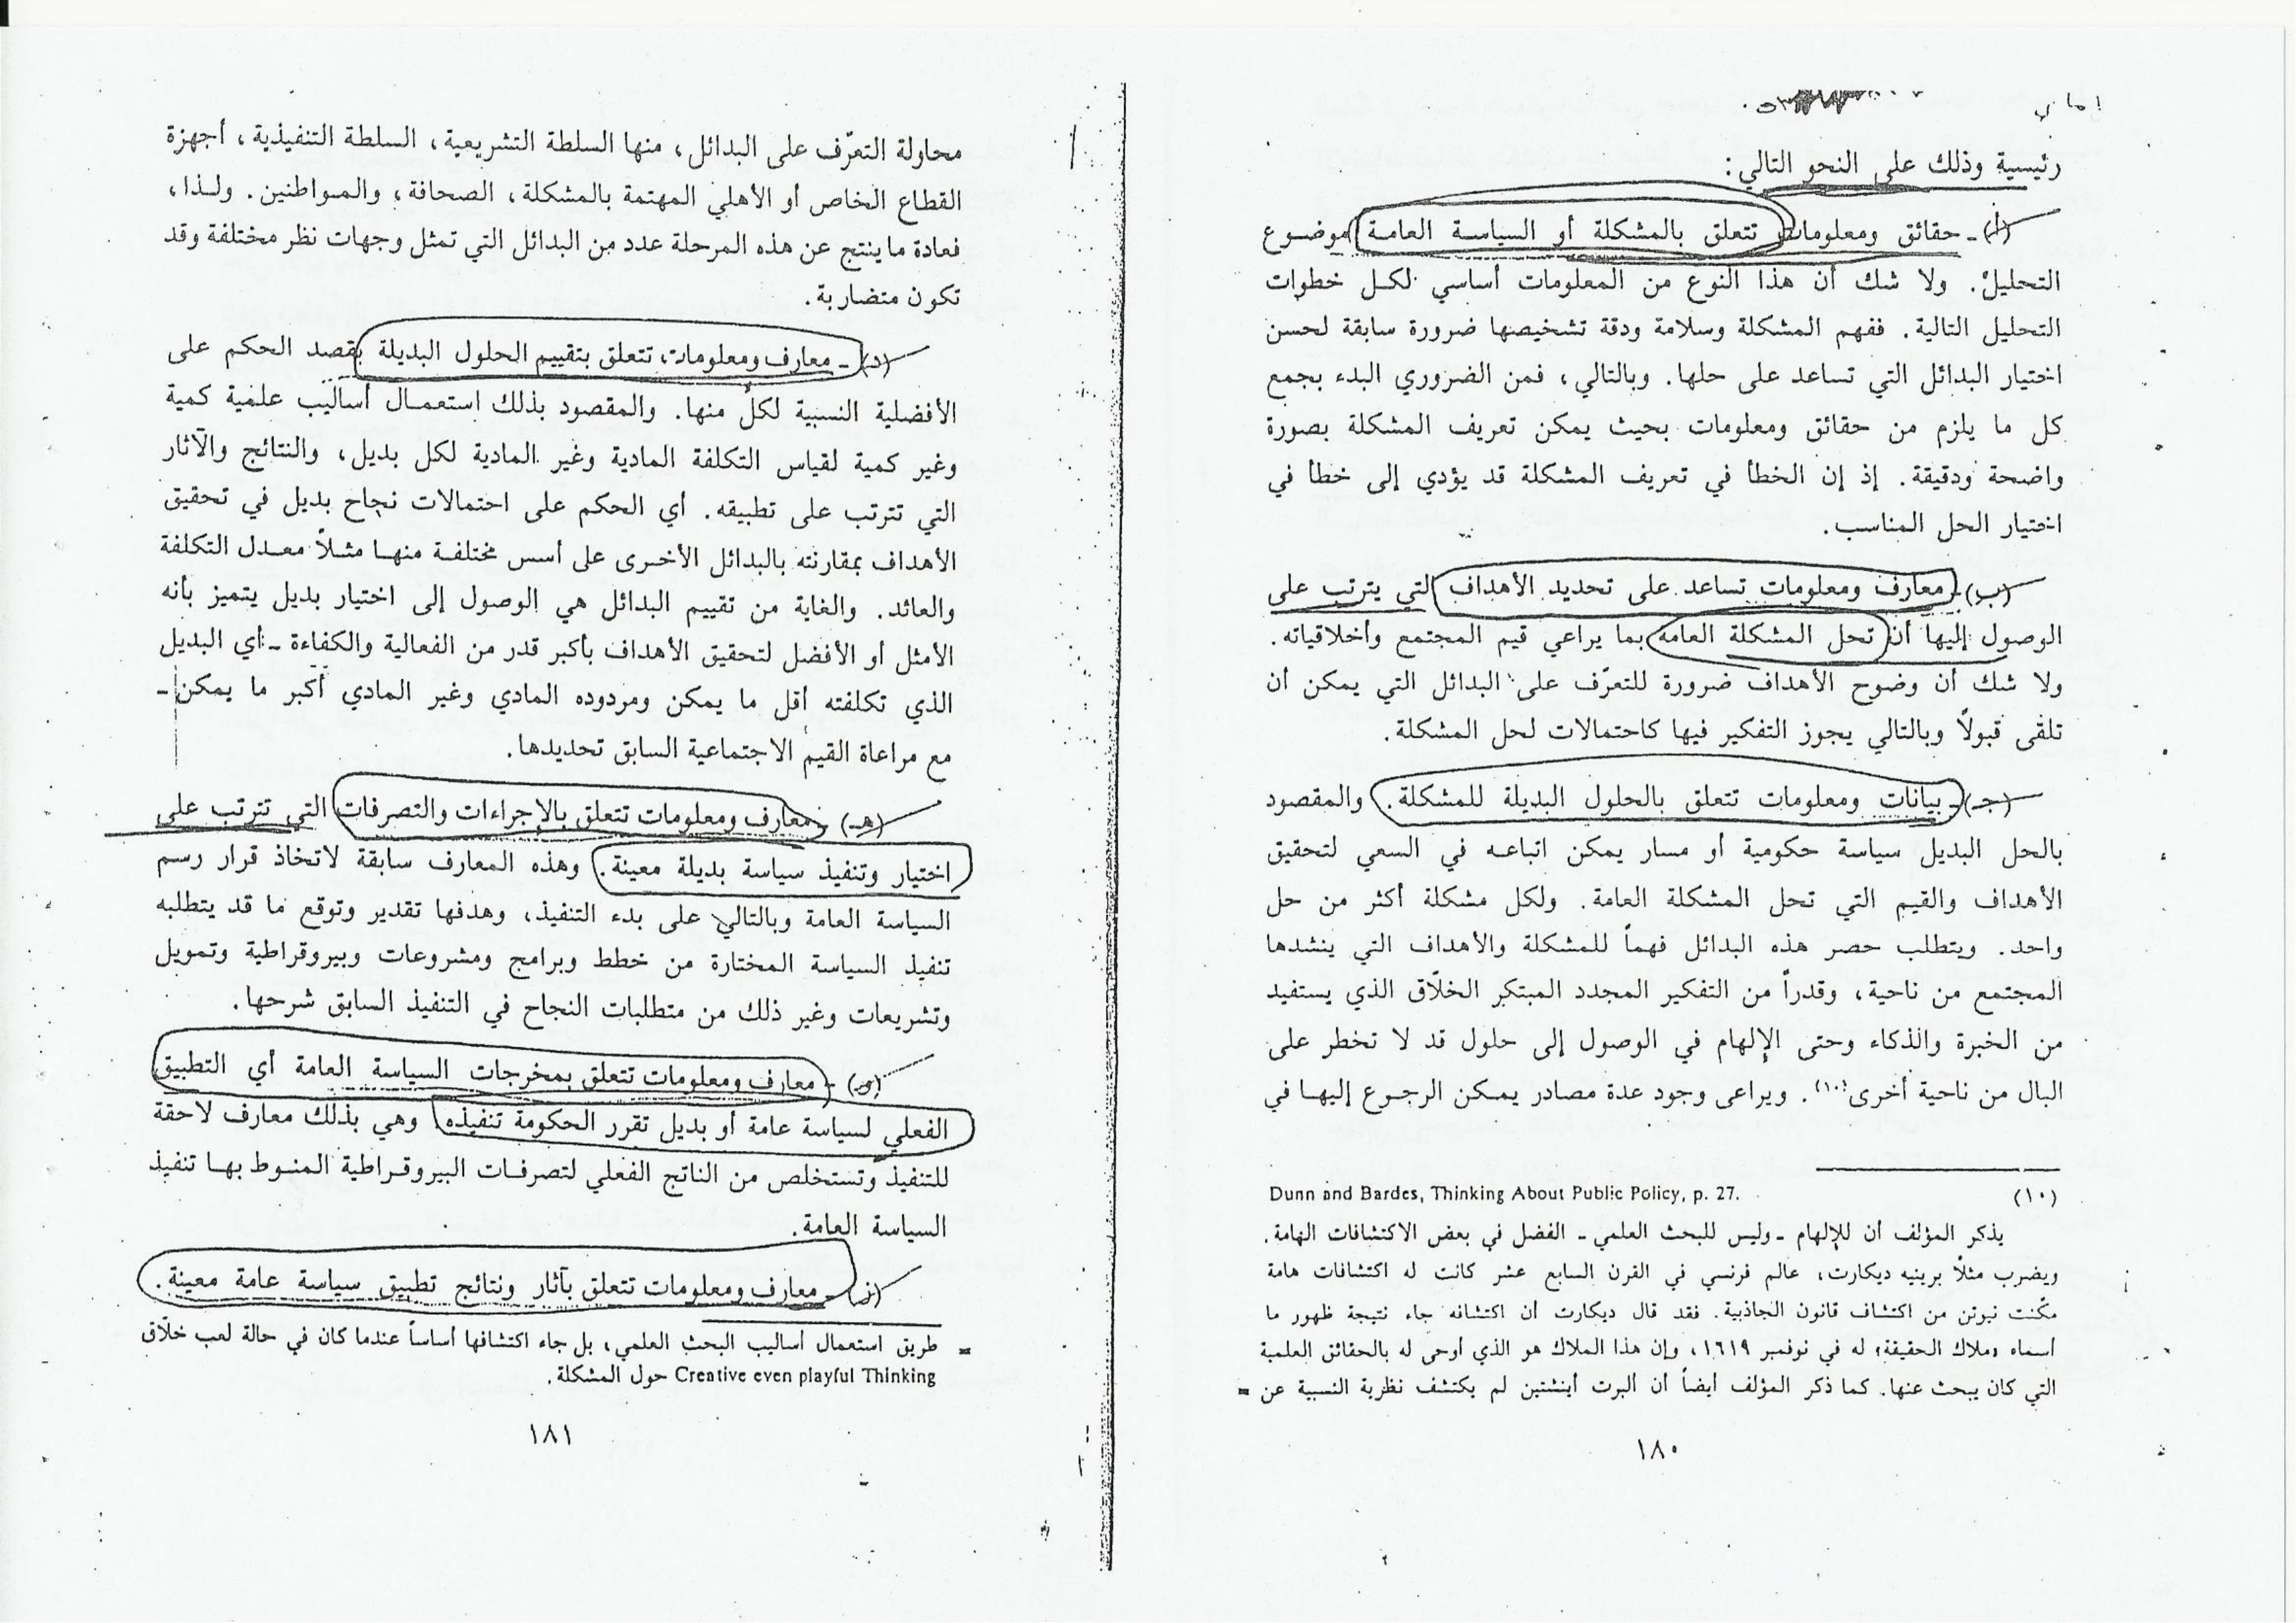 رئيسية وذلك على النحو التالي:
(أ) - حقائق ومعلومات تتعلق بالمشكلة أو السياسة العامة موضوع
التحليل. ولا شك أن هذا النوع من المعلومات أساسي لكل خطوات
التحليل التالية. ففهم المشكلة وسلامة ودقة تشخيصها ضرورة سابقة لحسن
اختيار البدائل التي تساعد على حلها. وبالتالي، فمن الضروري البدء بجمع
كل ما يلزم من حقائق ومعلومات بحيث يمكن تعريف المشكلة بصورة
واضحة ودقيقة. إذ إن الخطأ في تعريف المشكلة قد يؤدي إلى خطأ في
اختيار الحل المناسب.
(ب) - معارف ومعلومات تساعد على تحديد الأهداف التي يترتب على
الوصول إليها أن تحل المشكلة العامة بما يراعي قيم المجتمع وأخلاقياته.
ولا شك أن وضوح الأهداف ضرورة للتعرّف على البدائل التي يمكن أن
تلقى قبولاً وبالتالي يجوز التفكير فيها كاحتمالات لحل المشكلة.
(جـ) - بيانات ومعلومات تتعلق بالحلول البديلة للمشكلة. والمقصود
بالحل البديل سياسة حكومية أو مسار يمكن اتباعه في السعي لتحقيق
الأهداف والقيم التي تحل المشكلة العامة. ولكل مشكلة أكثر من حل
واحد. ويتطلب حصر هذه البدائل فهماً للمشكلة والأهداف التي ينشدها
المجتمع من ناحية، وقدراً من التفكير المجدد المبتكر الخلّاق الذي يستفيد
من الخبرة والذكاء وحتى الإلهام في الوصول إلى حلول قد لا تخطر على
البال من ناحية أخرى(١٠). ويراعى وجود عدة مصادر يمكن الرجوع إليها في
(١٠) Dunn and Bardes, Thinking About Public Policy, p. 27.
يذكر المؤلف أن للإلهام - وليس للبحث العلمي - الفضل في بعض الاكتشافات الهامة.
ويضرب مثلاً برينيه ديكارت، عالم فرنسي في القرن السابع عشر كانت له اكتشافات هامة
مكّنت نيوتن من اكتشاف قانون الجاذبية. فقد قال ديكارت أن اكتشافه جاء نتيجة ظهور ما
أسماه «ملاك الحقيقة» له في نوفمبر ١٦١٩، وإن هذا الملاك هو الذي أوحى له بالحقائق العلمية
التي كان يبحث عنها. كما ذكر المؤلف أيضاً أن ألبرت أينشتين لم يكتشف نظرية النسبية عن =
١٨٠
محاولة التعرّف على البدائل، منها السلطة التشريعية، السلطة التنفيذية، أجهزة
القطاع الخاص أو الأهلي المهتمة بالمشكلة، الصحافة، والمواطنين. ولذا،
فعادة ما ينتج عن هذه المرحلة عدد من البدائل التي تمثل وجهات نظر مختلفة وقد
تكون متضاربة.
(د) - معارف ومعلومات تتعلق بتقييم الحلول البديلة بقصد الحكم على
الأفضلية النسبية لكل منها. والمقصود بذلك استعمال أساليب علمية كمية
وغير كمية لقياس التكلفة المادية وغير المادية لكل بديل، والنتائج والآثار
التي تترتب على تطبيقه. أي الحكم على احتمالات نجاح بديل في تحقيق
الأهداف بمقارنته بالبدائل الأخرى على أسس مختلفة منها مثلاً معدل التكلفة
والعائد. والغاية من تقييم البدائل هي الوصول إلى اختيار بديل يتميز بأنه
الأمثل أو الأفضل لتحقيق الأهداف بأكبر قدر من الفعالية والكفاءة - أي البديل
الذي تكلفته أقل ما يمكن ومردوده المادي وغير المادي أكبر ما يمكن -
مع مراعاة القيم الاجتماعية السابق تحديدها.
(هـ) - معارف ومعلومات تتعلق بالإجراءات والتصرفات التي تترتب على
اختيار وتنفيذ سياسة بديلة معينة. وهذه المعارف سابقة لاتخاذ قرار رسم
السياسة العامة وبالتالي على بدء التنفيذ، وهدفها تقدير وتوقع ما قد يتطلبه
تنفيذ السياسة المختارة من خطط وبرامج ومشروعات وبيروقراطية وتمويل
وتشريعات وغير ذلك من متطلبات النجاح في التنفيذ السابق شرحها.
- معارف ومعلومات تتعلق بمخرجات السياسة العامة أي التطبيق
الفعلي لسياسة عامة أو بديل تقرر الحكومة تنفيذه. وهي بذلك معارف لاحقة
للتنفيذ وتستخلص من الناتج الفعلي لتصرفات البيروقراطية المنوط بها تنفيذ
السياسة العامة.
(ز) - معارف ومعلومات تتعلق بآثار ونتائج تطبيق سياسة عامة معينة.
= طريق استعمال أساليب البحث العلمي، بل جاء اكتشافها أساساً عندما كان في حالة لعب خلّاق
Creative even playful Thinking حول المشكلة.
١٨١